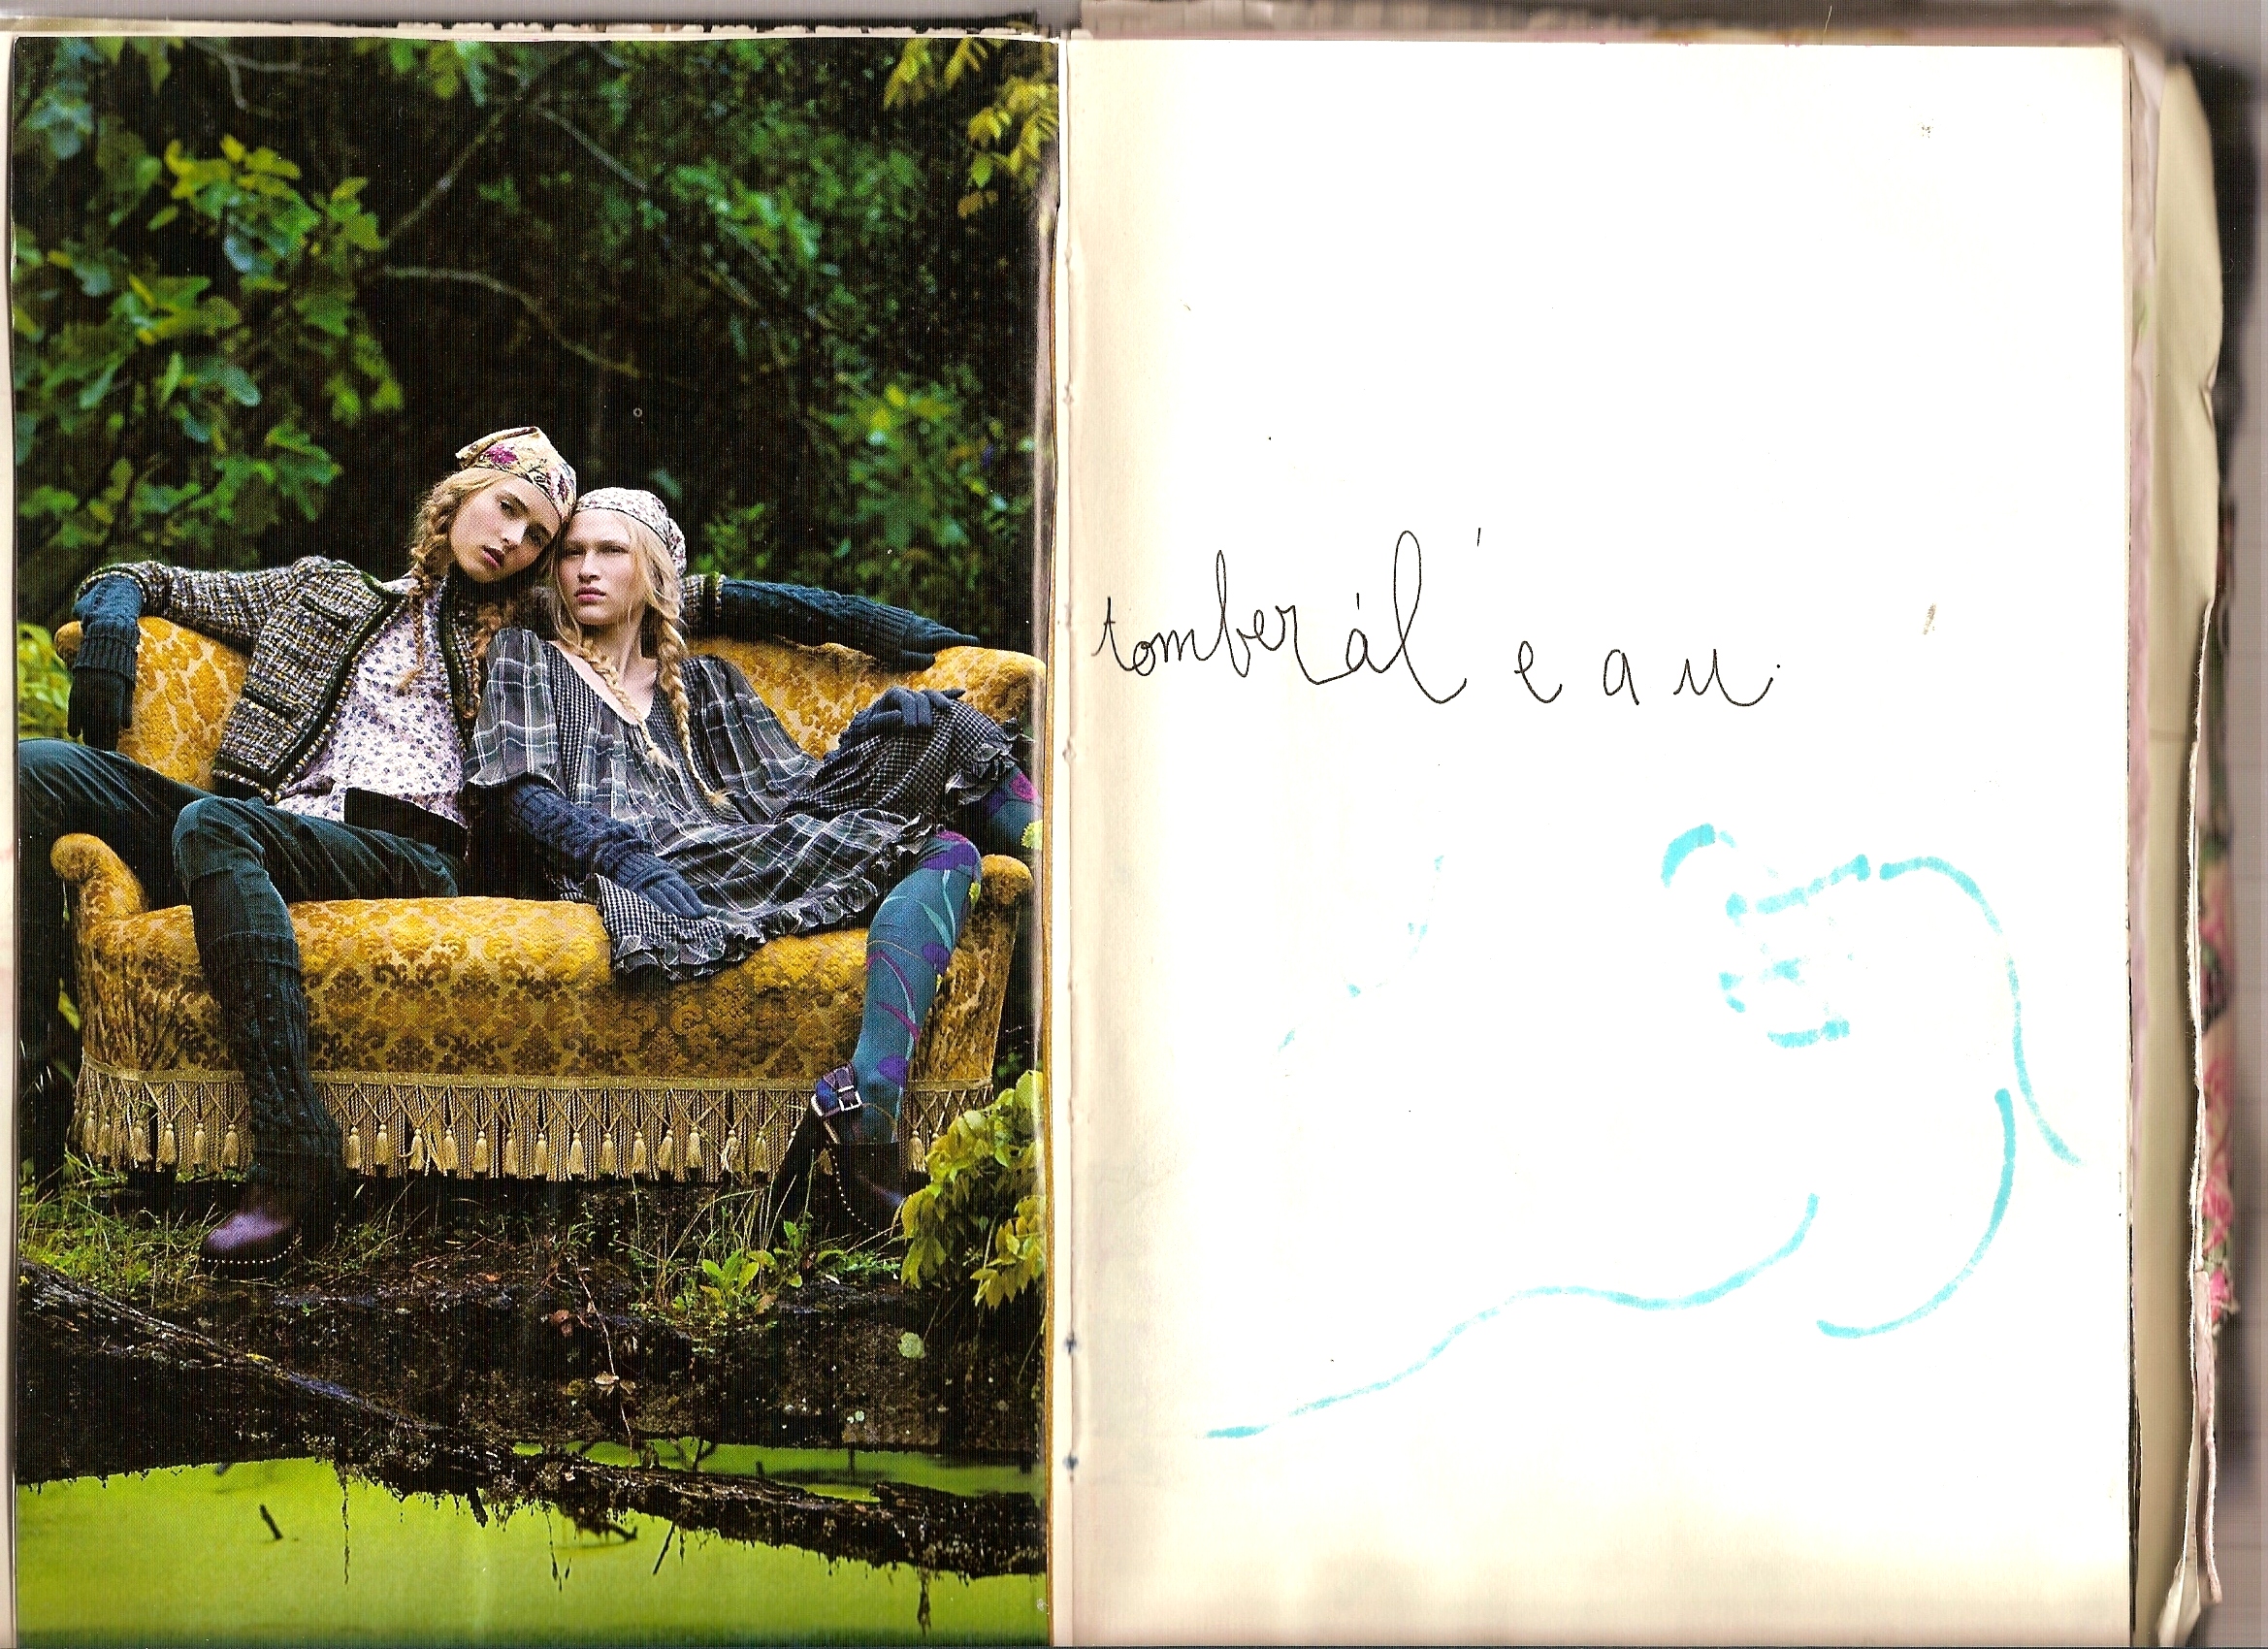 tomber ál'eau.